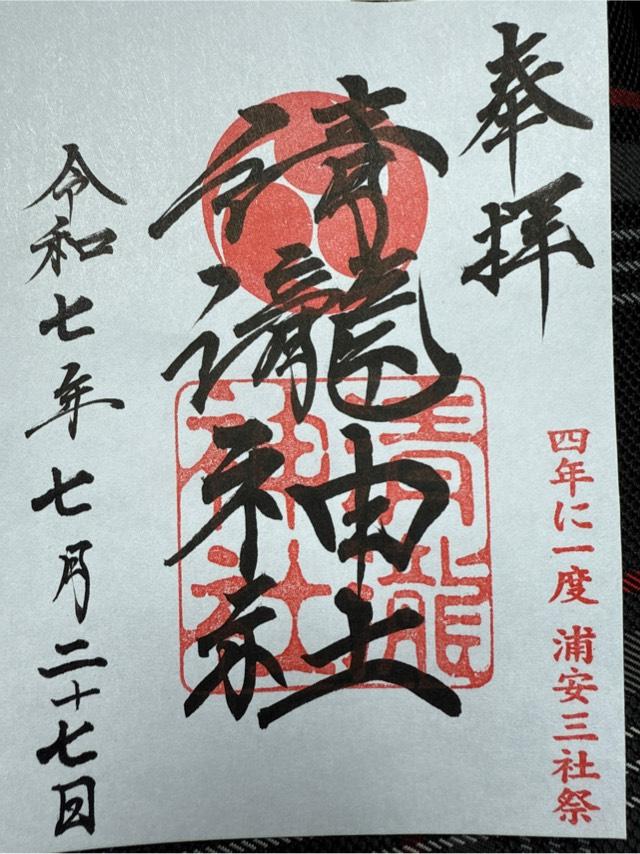 奉拝
四年に一度 浦安三社祭
清瀧神社
清瀧
神社
令和七年七月二十七日